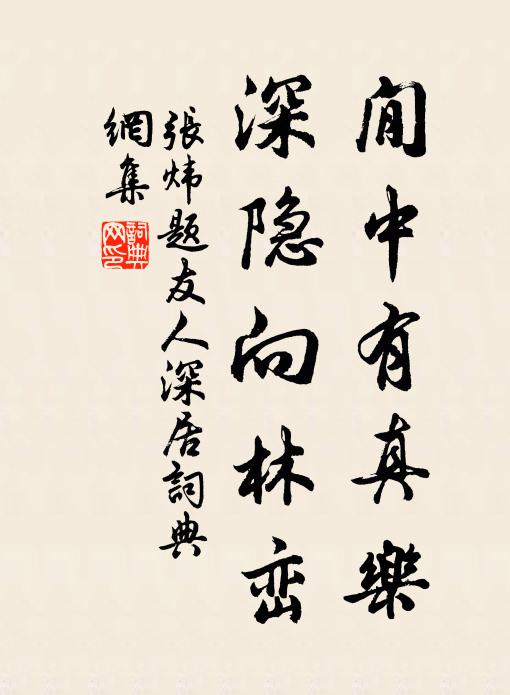 閒中有真樂
深隐向林峦
張炜题友人深居詞典
網集
詞典网印